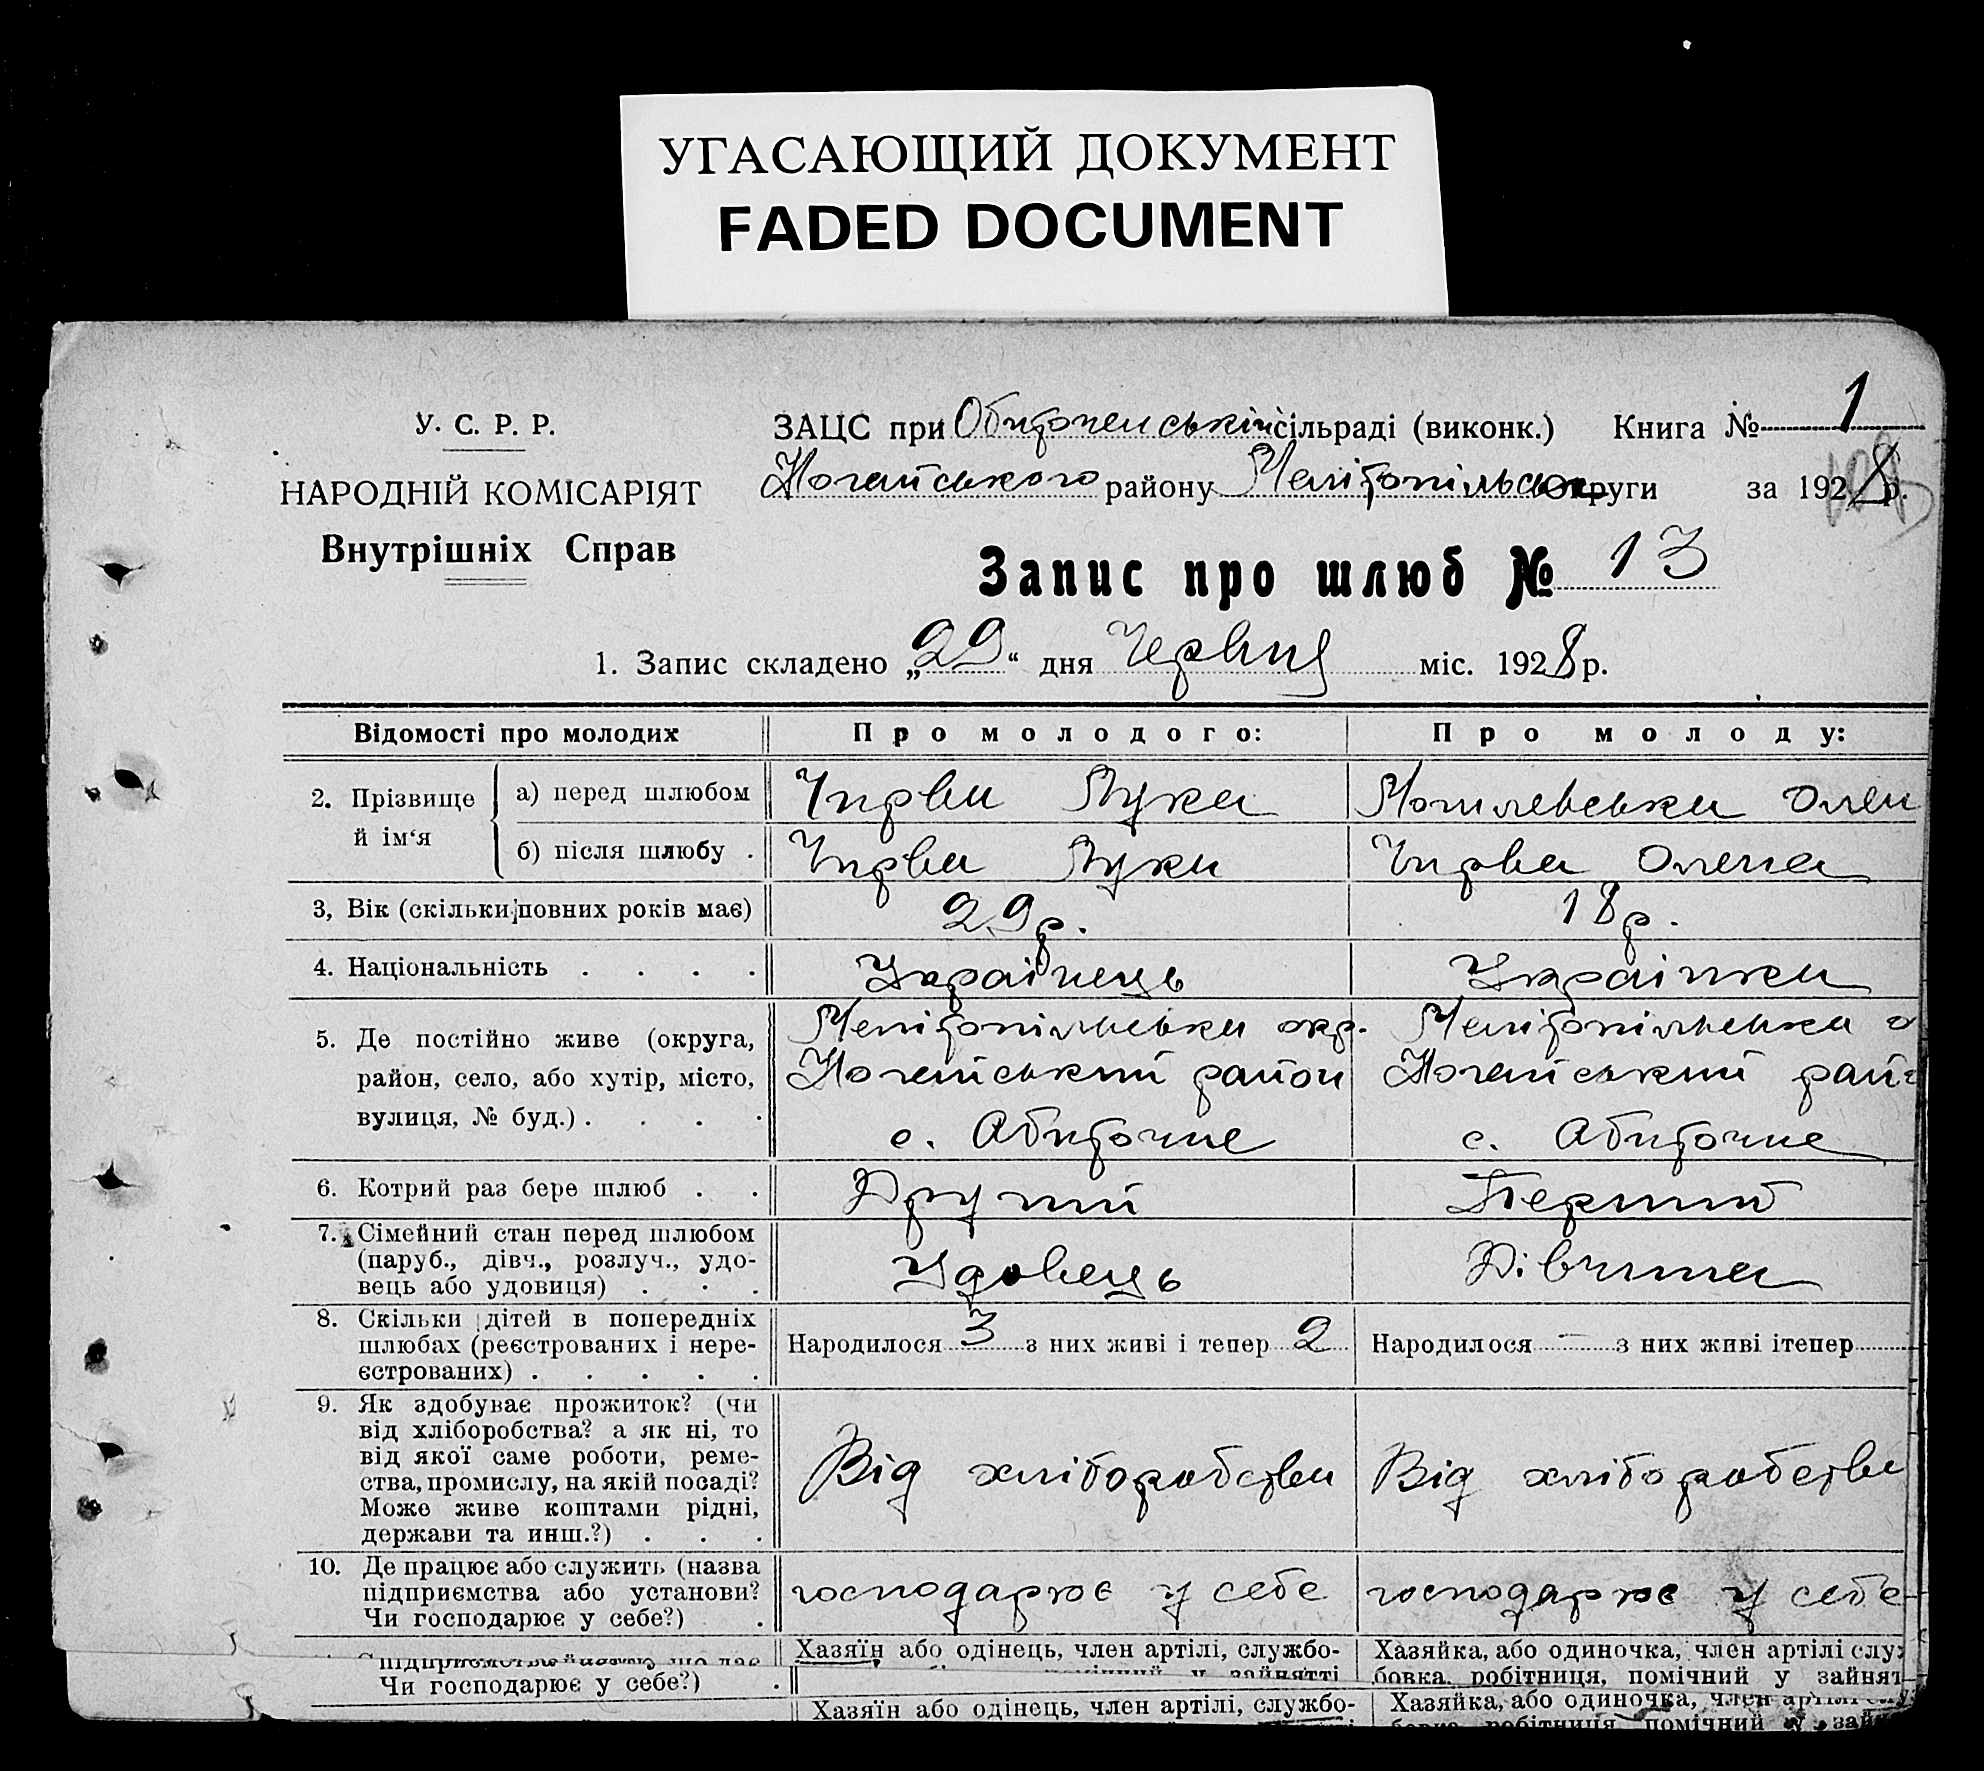 УГАСАЮЩИЙ ДОКУМЕНТ
FADED DOCUMENT
У. С. Р. Р.
НАРОДНІЙ КОМІСАРІЯТ
Внутрішніх Справ
ЗАЦС при Обиточенській сільраді (виконк.) Книга № 1
Ногайського району Мелітопільсь округи за 1928 р.
Запис про шлюб № 13
1. Запис складено „29“ дня Червня міс. 1928 р.
Відомості про молодих Про молодого: Про молоду:
2. Прізвище й ім‘я
а) перед шлюбом Чирва Лука Могилевська Олен
б) після шлюбу . Чирва Лука Чирва Олена
3, Вік (скільки повних років має) 29 р. 18 р.
4. Національність . . . . Українець Українка
5. Де постійно живе (округа,
район, село, або хутір, місто,
вулиця, № буд.) . . . .
Мелітопільська окр.
Ногайський район
с. Абиточне
Мелітопільська о
Ногайський райо
с. Абиточне
6. Котрий раз бере шлюб . . Другий Перший
7. Сімейний стан перед шлюбом
(паруб., дівч., розлуч., удо-
вець або удовиця) . . .
Удовець Дівчина
8. Скільки дітей в попередніх
шлюбах (реєстрованих і нере-
єстрованих) . . . . .
Народилося 3 з них живі і тепер 2
Народилося — з них живі ітепер
9. Як здобуває прожиток? (чи
від хліборобства? а як ні, то
від якої саме роботи, реме-
ства, промислу, на якій посаді?
Може живе коштами рідні,
держави та инш.?) . . .
Від хліборобства Від хліборобства
10. Де працює або служить (назва
підприємства або установи?
Чи господарює у себе?) .
господарює у себе господарює у себе
Хазяїн або одінець, член артілі, службо-
Хазяйка, або одиночка, член артілі слу
помічний у зайнятті
бовка, робітниця, помічний у зайнят
Чи господарює у себе?) .
Хазяїн або одінець, член артілі, службо-
Хазяйка, або одиночка, член артілі
бовка, робітниця, помічний у зайн